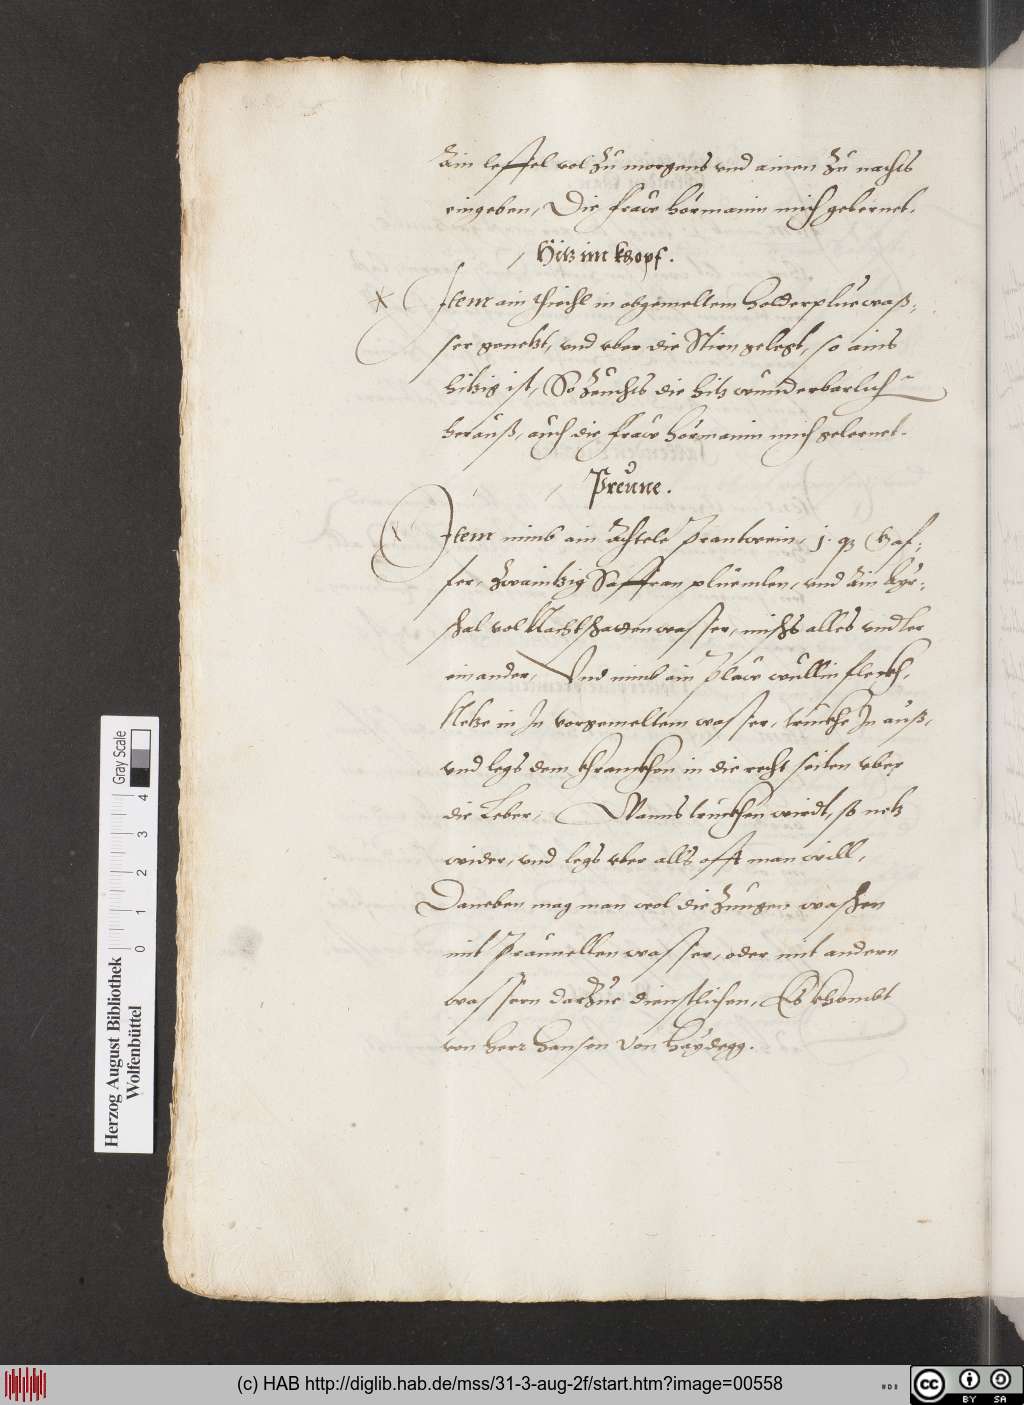 Ain leffel vol zu morgens vnd ainen zu nachts
eingeben, Die fraw Hörmanin mich gelernet.
Hitz im khopf.
Item ain thiechl in obgemeltem Holderplüewaß„
ser genetzt, vnd vber die Stirn gelegt, so ains
hitzig ist, So zeuchts die hitz wunderbarlich
herauß, auch die fraw Hörmanin mich gelernet.
Preüne.
Item nimb ain Achtele Prantwein, j. q3 Gaf„
fer, zwaintzig Saffran plüemlen, vnd ain Ayr„
schal vol Nachtschattenwasser, mischs alles vndter
einander, Vnd nimb ain plaw wullin fleckh,
Netze in In vorgemeltem wasser, truckhe In auß,
vnd legs dem khranckhen in die recht seiten vber
die Leber, Wanns truckhen wirdt, so netz
wider, vnd legs vber alls offt man will,
Daneben mag man wol die Zungen waschen
mit Praunellenwasser, oder mit andern
wassern darzue dienstlichen, Es khombt
von herr Hansen von Haydegg.
Gray Scale
0 1 2 3 4
Herzog August Bibliothek
Wolfenbüttel
(c) HAB http://diglib.hab.de/mss/31-3-aug-2f/start.htm?image=00558
cc BY SA